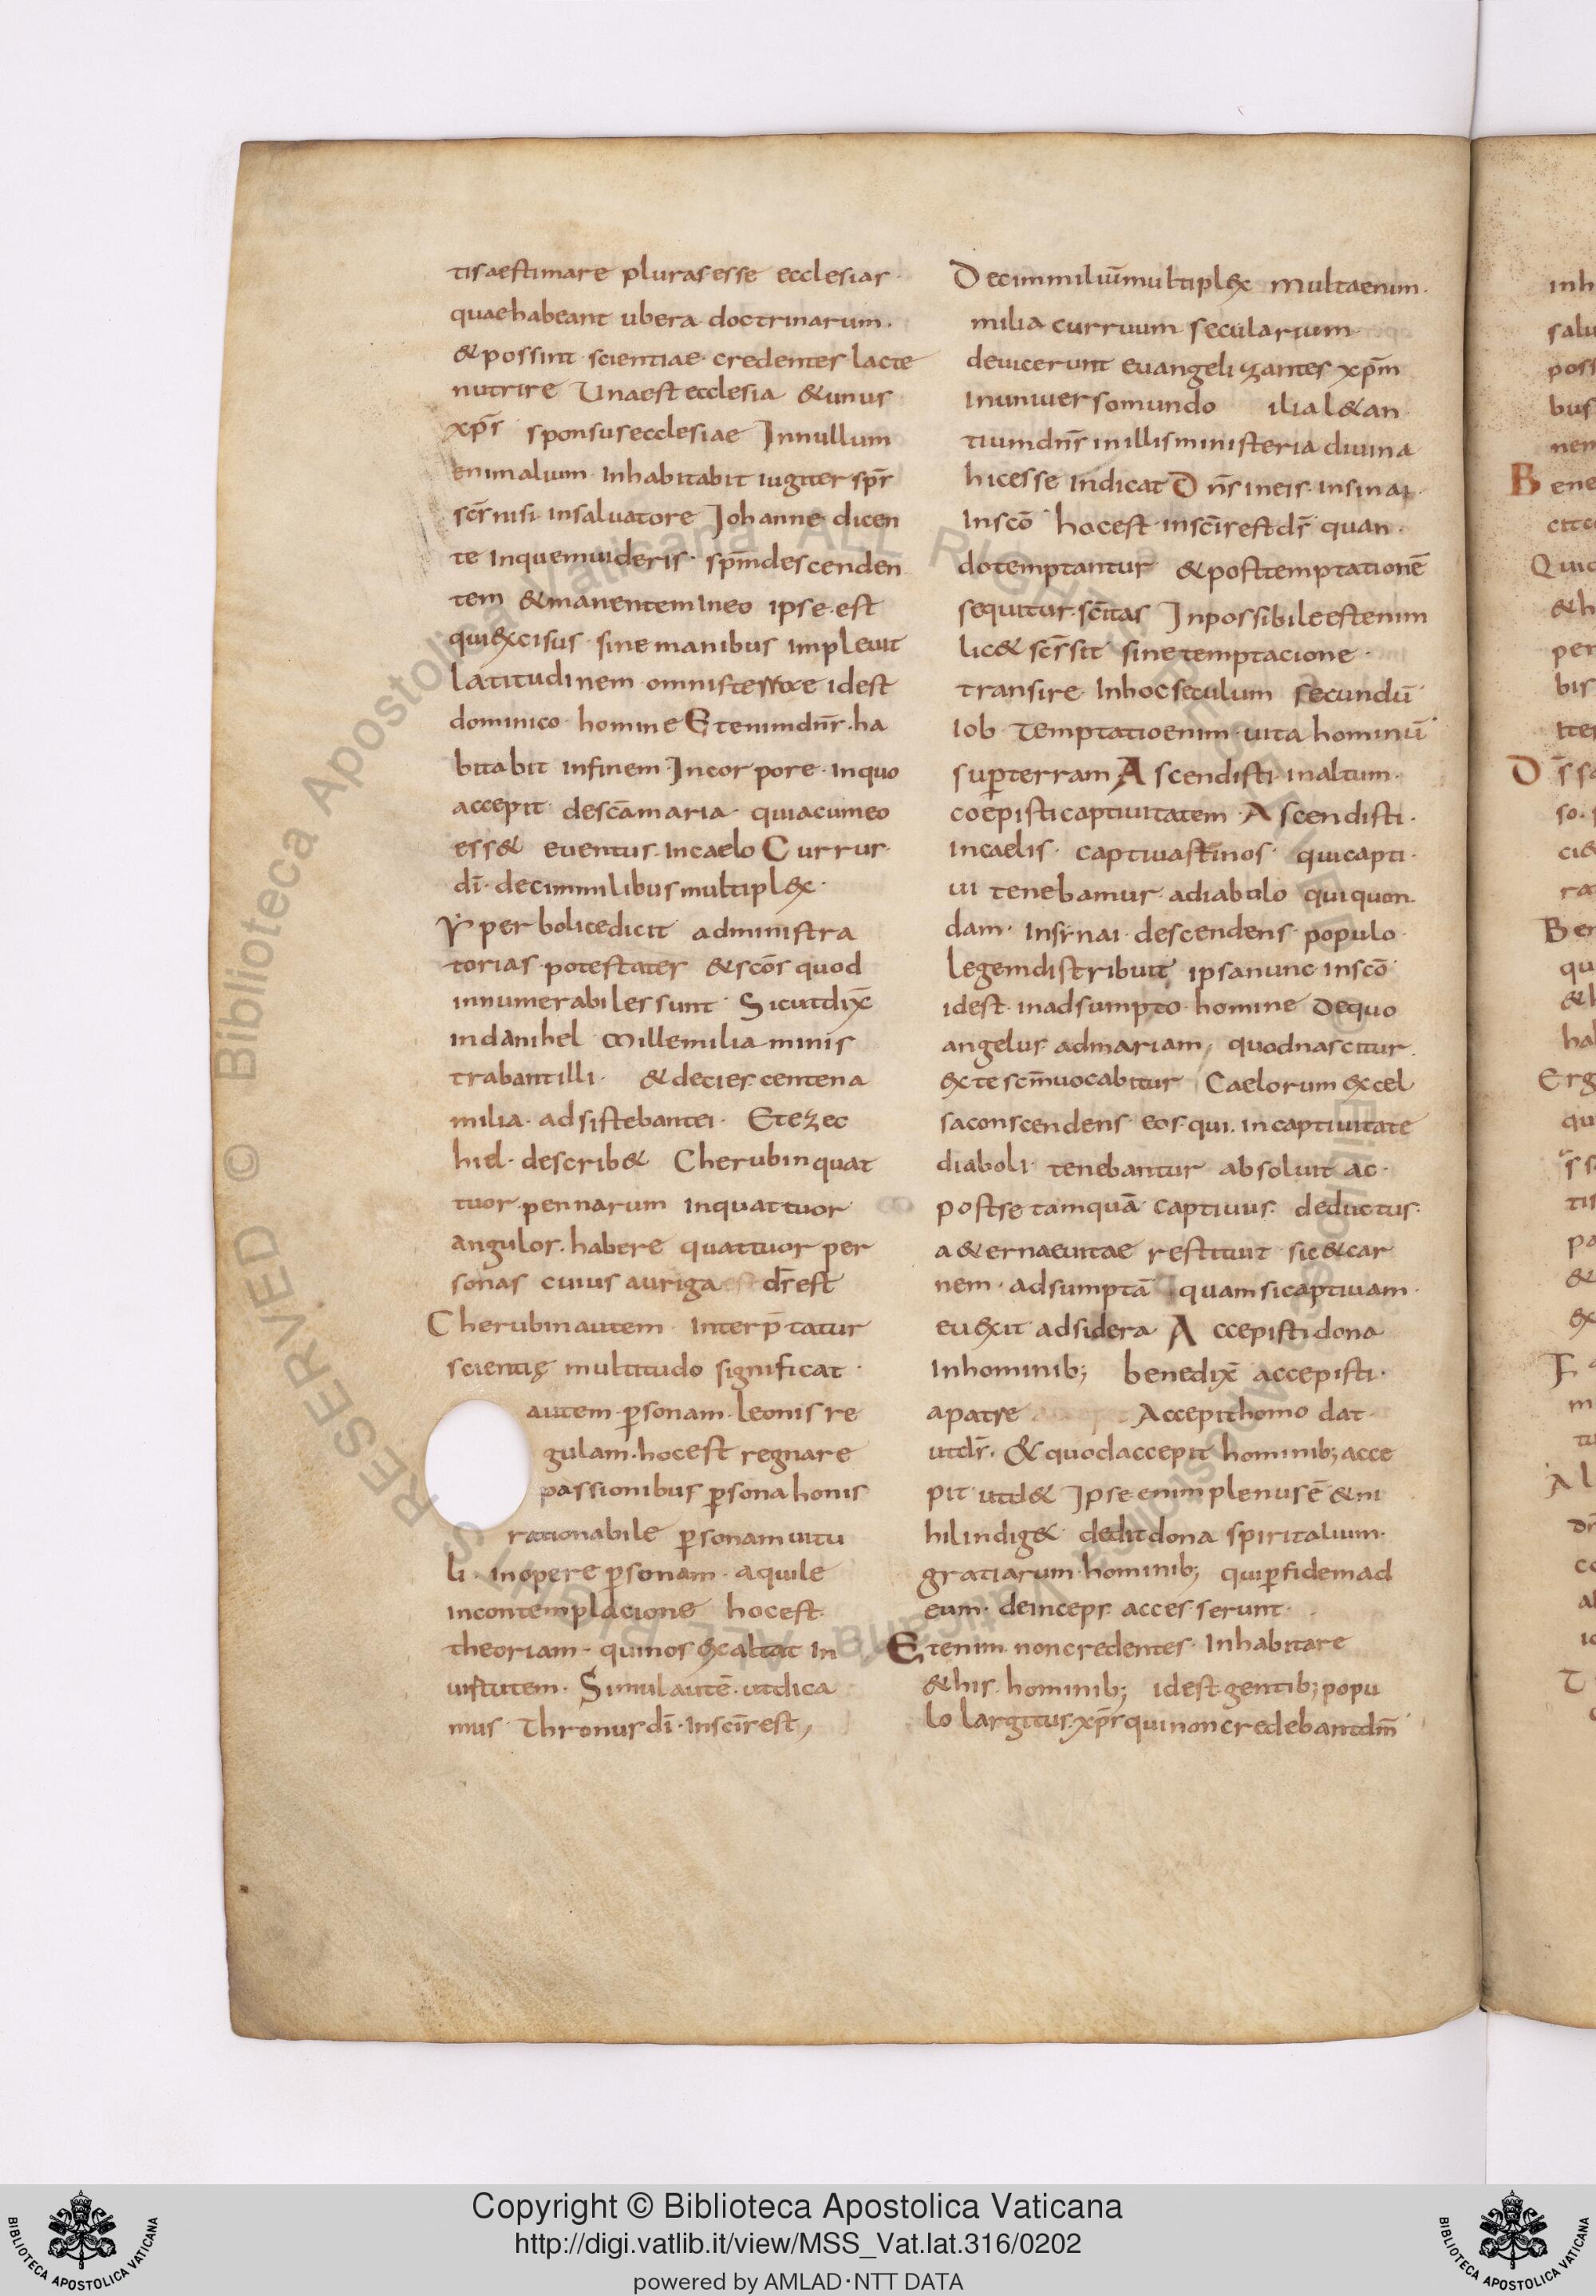 tis aestimare pluras esse ecclesias
quae habeant ubera doctrinarum.
& possint scientiae credentes lacte
nutrire Una est ecclesia & unus
xp̄s sponsus ecclesiae In nullum
enim alium inhabitabit iugiter sp̄s
sc̄s nisi in saluatore Johanne dicen
te in quem uideris sp̄m descenden
tem & manentem in eo ipse est
qui excisus sine manibus impleuit
latitudinem omnis terrae id est
dominico homine Etenim dn̄s ha
bitabit in finem In corpore in quo
accepit de sc̄a maria quia cum eo
ess& euentus in caelo Currus
dī decim milibus multiplex
Yperbolice dicit administra
torias potestates & sc̄os quod
innumerabiles sunt Sicut dix̄
in danihel Mille milia minis
trabant illi & decies centena
milia adsistebant ei Et ezec
hiel describ& Cherubin quat
tuor pennarum in quattuor
angulos habere quattuor per
sonas cuius auriga est ds̄ est
Cherubin autem interp̄tatur
scientię multitudo significat
autem ꝑsonam leonis re
gulam hoc est regnare
passionibus ꝑsona honis
rationabile ꝑsonam uitu
li in opere ꝑsonam aquile
in contemplacione hoc est
theoriam qui nos exaltat in
uirtutem. Simul autē ut dica
mus Thronus dī in scīs est,
Decim miliū multiplex multa enim
milia curruum secularium
deuicerunt euangelizantes xp̄m
in uniuerso mundo ilia l&an
tium dn̄s in illis ministeria diuina
hic esse indicat Dn̄s in eis in sinai
in scō hoc est in scīs est ds̄ quan
do temptantur & post temptationē
sequitur scītas Inpossibile est enim
lic& scs̄ sit sine temptacione
transire in hoc seculum secundū
iob Temptatio enim uita hominū
suꝑ terram Ascendisti in altum
coepisti captiuitatem Ascendisti
in caelis captiuasti nos qui capti
ui tenebamur a diabulo qui quon
dam in synai descendens populo
legem distribuit ipsa nunc in scō
id est in adsumpto homine de quo
angelus ad mariam, quod nascitur
ex te scm̄ uocabitur Caelorum excel
sa conscendens eos qui in captiuitate
diaboli tenebantur absoluit ac
post se tamquā captiuus deductus
a&ernae uitae restituit sic & car
nem adsumptā quam si captiuam
euexit ad sidera Accepisti dona
in hominib; benedix̄ accepisti
a patre Accepit homo dat
ut ds̄. & quod accepit hominib; acce
pit ut d& Ipse enim plenus ē & ni
hil indig& dedit dona spiritalium
gratiarum hominib; qui ꝑ fidem ad
eum deinceps accesserunt
Etenim non credentes inhabitare
& his hominib; id est gentib; popu
lo largitus xp̄s qui non credebant dm̄
Copyright © Biblioteca Apostolica Vaticana
http://digi.vatlib.it/view/MSS_Vat.lat.316/0202
powered by AMLAD·NTT DATA